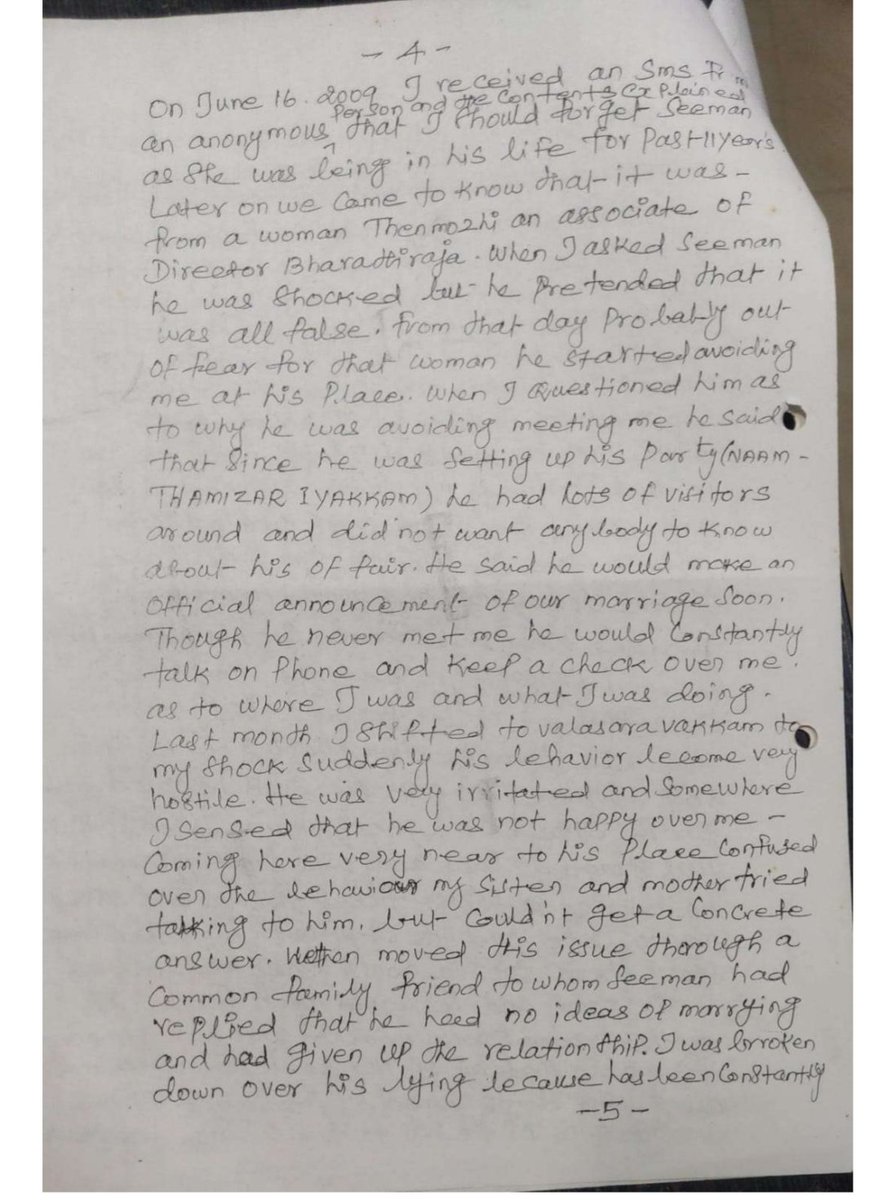 - 4 -
On June 16. 2009 I received an Sms
person and the contents explained
an anonymous that I should forget Seeman
as she was being in his life for past 11 years.
Later on we came to know that it was -
from a woman Thenmozhi an associate of
Director Bharathiraja. When I asked Seeman
he was shocked but he pretended that it
was all false. from that day probably out
of fear for that woman he started avoiding
me at his place. When I questioned him as
to why he was avoiding meeting me he said
that since he was setting up his party (NAAM -
THAMIZAR IYAKKAM) he had lots of visitors
around and did not want anybody to know
about his of fair. He said he would make an
official announcement of our marriage soon.
Though he never met me he would constantly
talk on phone and keep a check over me.
as to where I was and what I was doing.
Last month I shifted to valasaravakkam to
my shock suddenly his behavior become very
hostile. He was very irritated and somewhere
I sensed that he was not happy over me -
coming here very near to his place confused
over the behaviour my sister and mother tried
talking to him. but couldn't get a concrete
answer. We then moved this issue thorough a
common family friend to whom Seeman had
replied that he heed no ideas of marrying
and had given up the relationship. I was broken
down over his lying because has been constantly
- 5 -